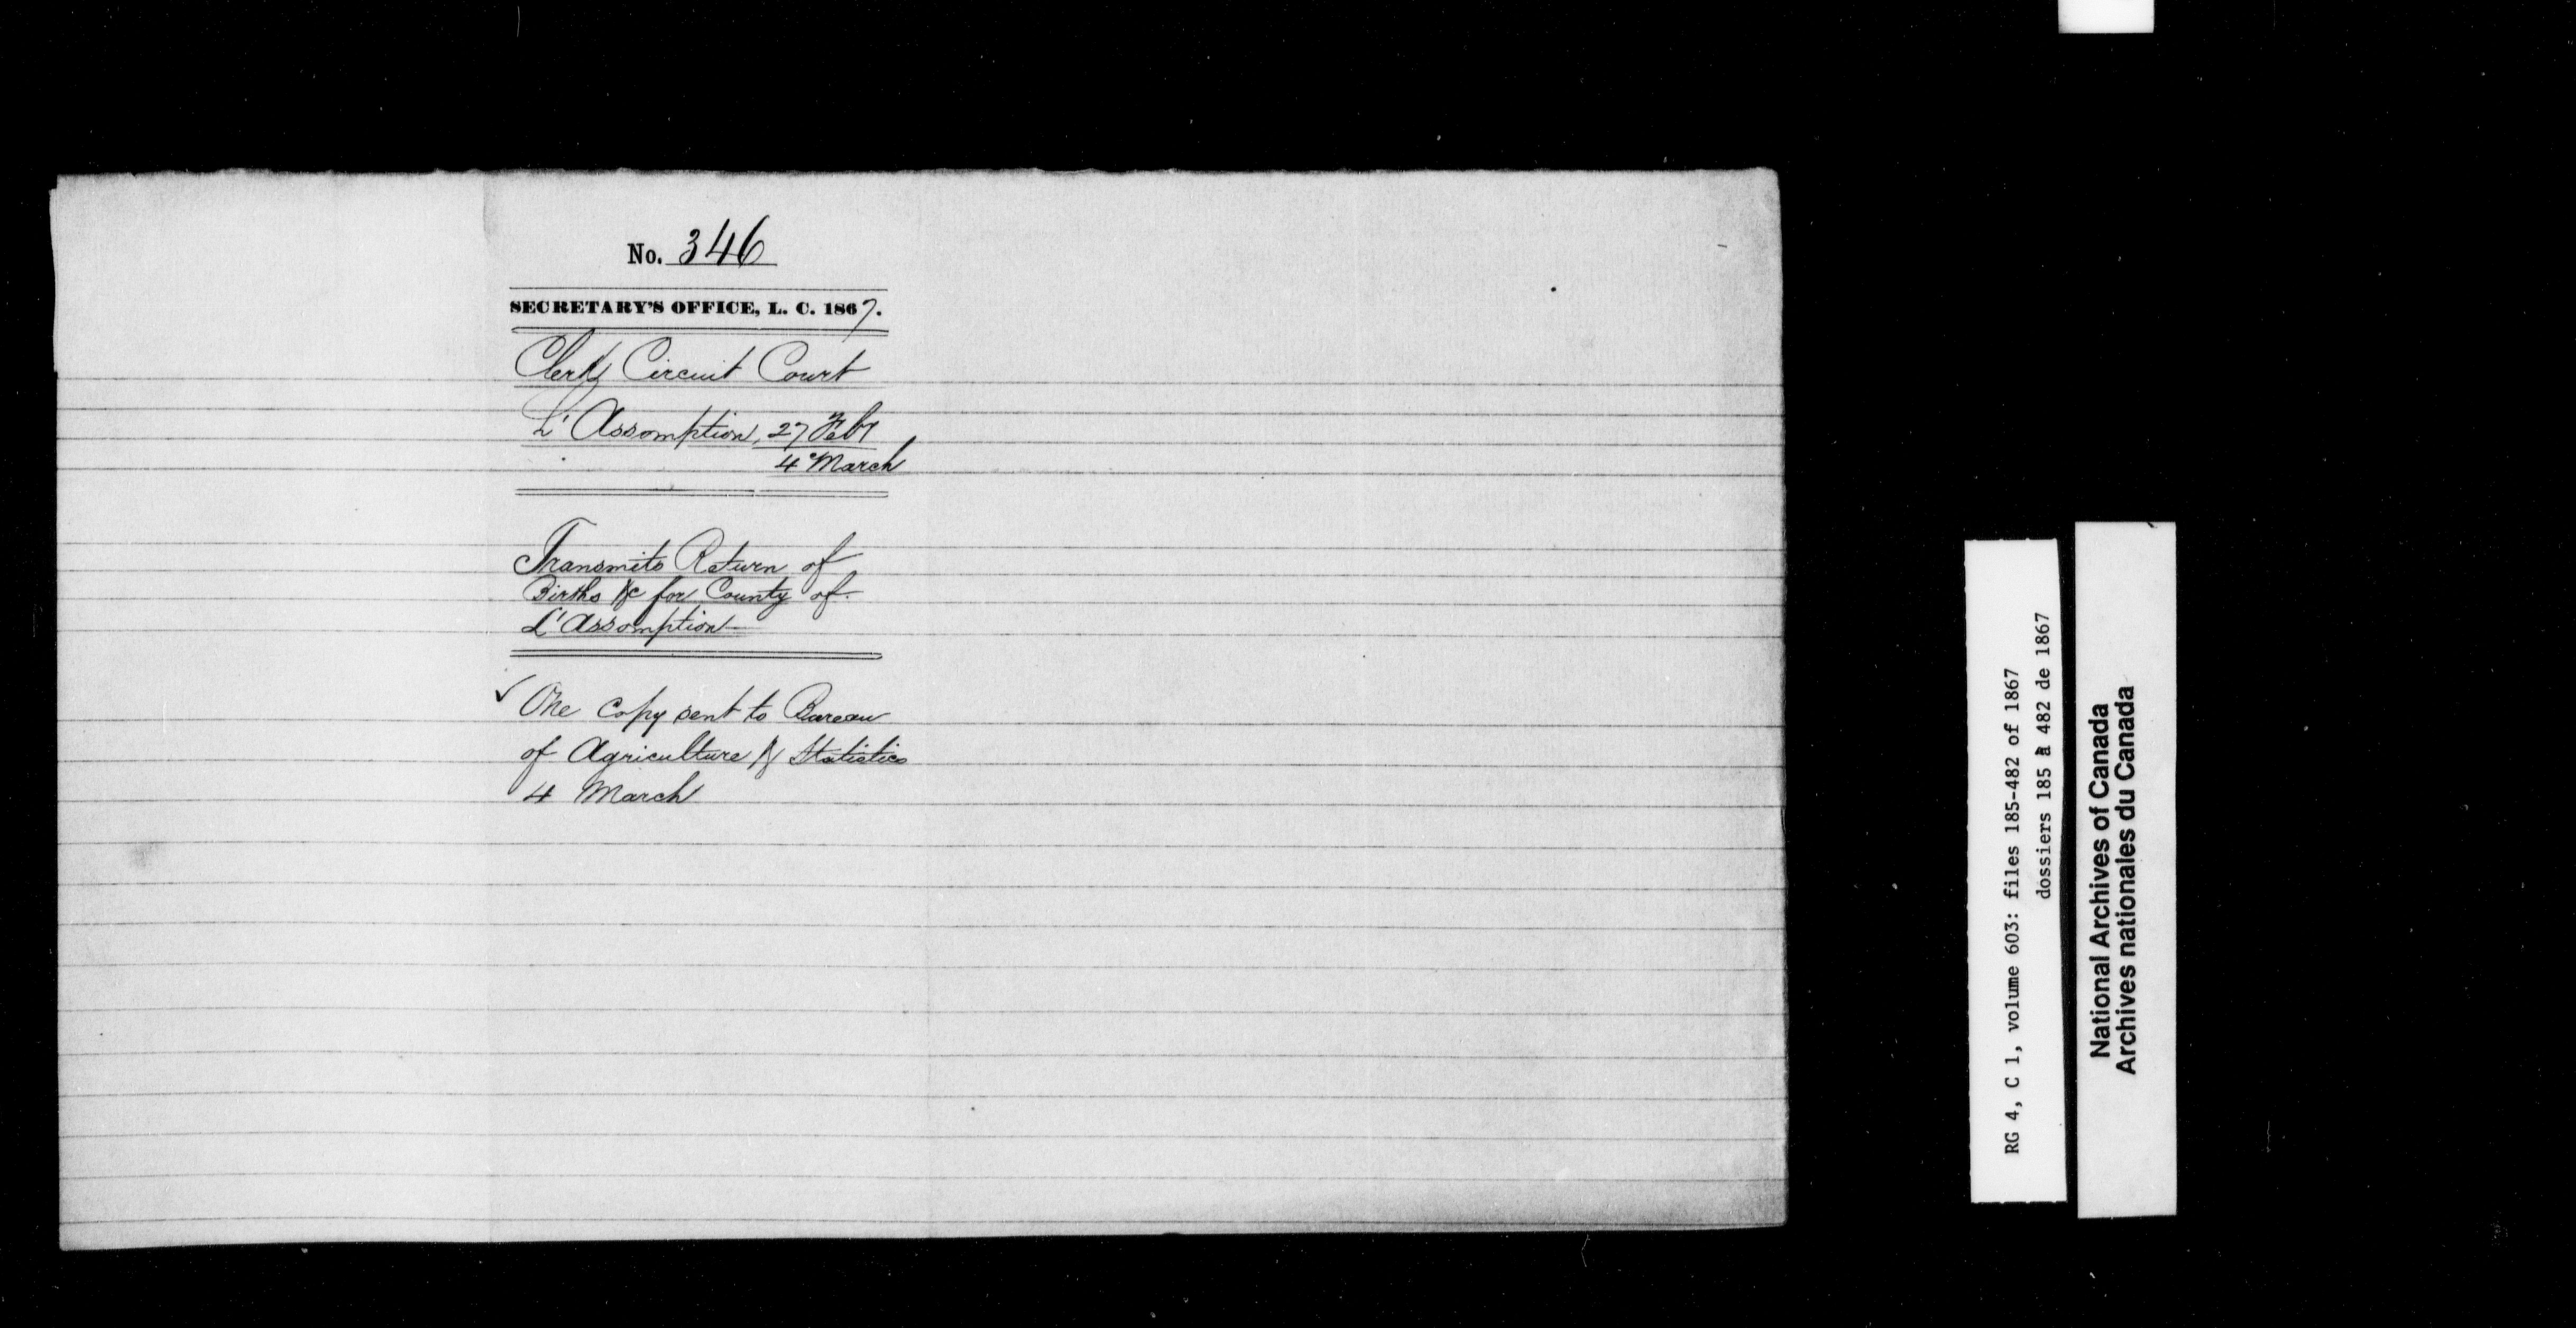 No. 346
SECRETARY'S OFFICE, L. C. 1867.
Clerk Circuit Court
L'Assomption, 27 Feby
4 March
Transmits Return of
Births &c for County of
L'Assomption
✓ One copy sent to Bureau
of Agriculture & Statistics
4 March
RG 4, C 1, volume 603: files 185-482 of 1867
dossiers 185 à 482 de 1867
National Archives of Canada
Archives nationales du Canada